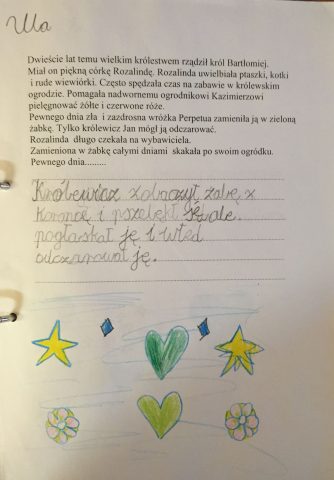 Ula
Dwieście lat temu wielkim królestwem rządził król Bartłomiej.
Miał on piękną córkę Rozalindę. Rozalinda uwielbiała ptaszki, kotki
i rude wiewiórki. Często spędzała czas na zabawie w królewskim
ogrodzie. Pomagała nadwornemu ogrodnikowi Kazimierzowi
pielęgnować żółte i czerwone róże.
Pewnego dnia zła i zazdrosna wróżka Perpetua zamieniła ją w zieloną
żabkę. Tylko królewicz Jan mógł ją odczarować.
Rozalinda długo czekała na wybawiciela.
Zamieniona w żabkę całymi dniami skakała po swoim ogródku.
Pewnego dnia.........
Królewicz zobaczył żabę z
koroną i
pogłaskał ję i wted
odczarował ję.